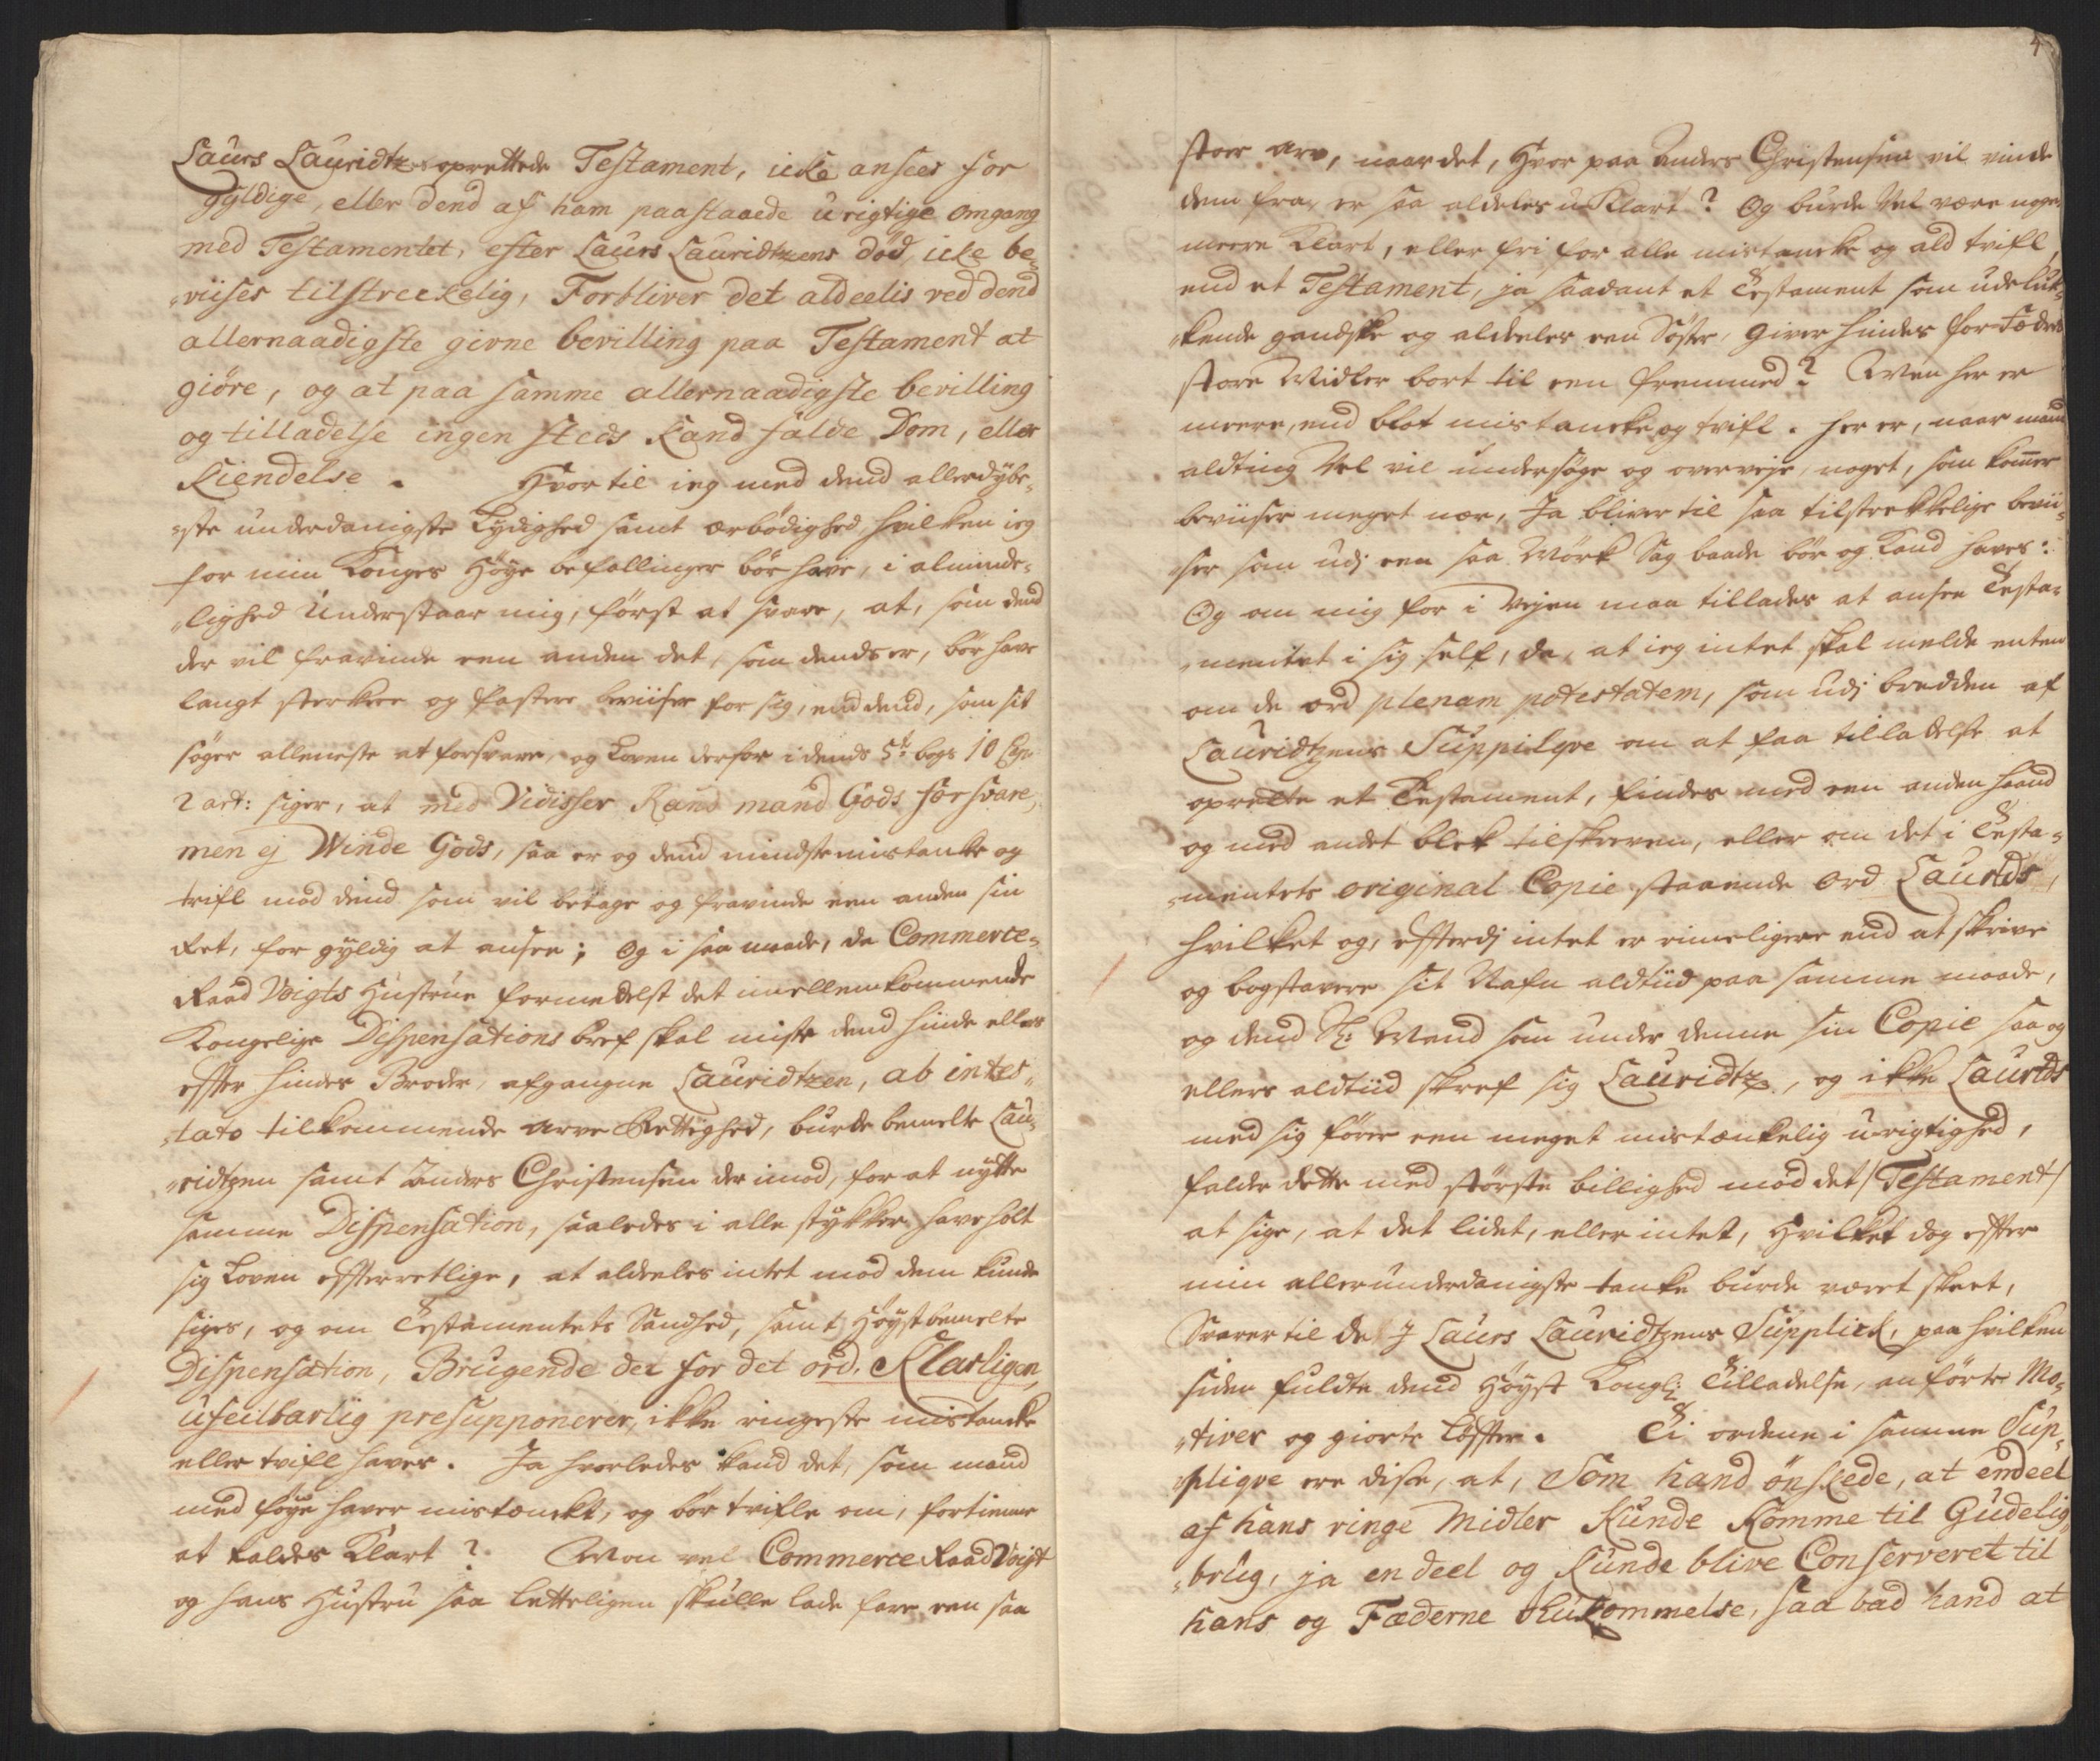 Laurs Lauridtzes oprettede Testament, icke ansees for
gyldige, eller dend af ham paastaaede urigtige omgang
med Testamentet, efter Laurs Lauridtzens død, icke be„
„viises tilstreckelig, Forbliver det aldeelis ved dend
allernaadigste givne bevilling paa Testament at
giöre, og at paa samme allernaadigste bevilling
og tilladelse ingen steds Kand falde Dom, eller
Kiendelse. Hvor til ieg med dend allerdybe„
„ste underdanigste Lydighed samt ærbödighed, hvilken ieg
for min Konges Höye befallinger bör have, i alminde„
„lighed Understaar mig, först at svare, at, som dend
der vil fravinde een anden det, som dends er, bör have
langt sterkere og fastere beviiser for sig, end dend, som sit
söger alleneste at forsvare, og Loven derfor i dends 5te bogs 10 Cap:
2 art: siger, at med Vidisser Kand mand Gods forsvare,
men ej Winde Gods, saa er og dend mindste mistanke og
tvifl mod dend som vil betage og fravinde een anden sin
Ret, for gyldig at ansee; Og i saa maade, da Commerce„
Raad Voigts Hustrue formedelst det imellemkommende
Kongelige Dispensations bref skal miste dend hinde eller
efter hindes Broder, afgangne Lauridtzen, ab intes„
„tato tilkommende arve Rettighed, burde bemelte Lau„
„ridtzen samt Anders Christensen der imod, for at nytte
samme Dispensation, saaledes i alle stykker have holt
sig Loven efterretlige, at aldeeles intet mod dem kunde
siges, og om Testamentets Sandhed, samt Höystbemelte
Dispensation, Brugende der for det ord. Klarligen,
ufeilbarlig presupponerer, ikke ringeste mistanke
eller tvifl haves. Ja hvorledes kand det, som mand
med föye haver mistænckt, og bör tvifle om, fortiene
at kaldes Klart? Mon vel Commerce Raad Voigt
og hans Hustru saa letteligen skulle lade fare een saa
4
stoer arv, naar det, hvor paa Anders Christensen vil vinde
dem fra, er saa aldeles u-Klart? Og burde Vel være noget
meere Klart, eller fri for alle mistancke og ald tvifl,
end et Testament, ja saadant et Testament som udeluk„
„kende gandske og aldeeles een Söster, giver hindes for-Fædres
store Midler bort til een fremmed? Men her er
meere, end blot mistancke og tvifl. her er, naar mand
alting Vel vil undersöge og overveje, noget, som komer
beviiser meget nær, Ja bliver til saa tilstrekkelige bevii„
„ser som udj een saa Mörk Sag baade bör og Kand haves:
Og om mig for i Vejen maa tillades at ansee Testa„
„mentet i sig self, da, at ieg intet skal melde enten
om de ord plenam potestatem, som udj bredden af
Lauridtzens Suppilqve om at faa tilladelse at
oprette et Testament, findes med een anden haand
og med andet blek tilskreven, eller om det i Testa„
„mentets original Copie staaende Ord Laurids,
hvilket og, efterdj intet er rimeligere end at skrive
og bogstavere sit Nafn altiid paa samme maade,
og dend Sl: Mand som under denne sin Copie saa og
ellers altiid skref sig Lauridtz, og ikke Laurids
med sig förer een meget mistænkelig u-rigtighed,
falder dette med störste billighed mod det /Testament/
at sige, at det lidet, eller intet, hvilket dog efter
min allerunderdanigste tanke burde været skeet,
Svarer til de J Laurs Lauridtzens Supplick, paa hvilken
siden fuldte dend Höyst Kongl: Tilladelse, anförte Mo„
„tiver og giorte Löfter. Ti ordene i samme Sup„
„pliqve ere disse, at, Som hand önskede, at endeel
af hans ringe Midler Kunde Komme til Gudelig
„brug, ja en deel og Kunde blive Conserveret til
hans og Fæderne Ihukommelse, saa bad hand at